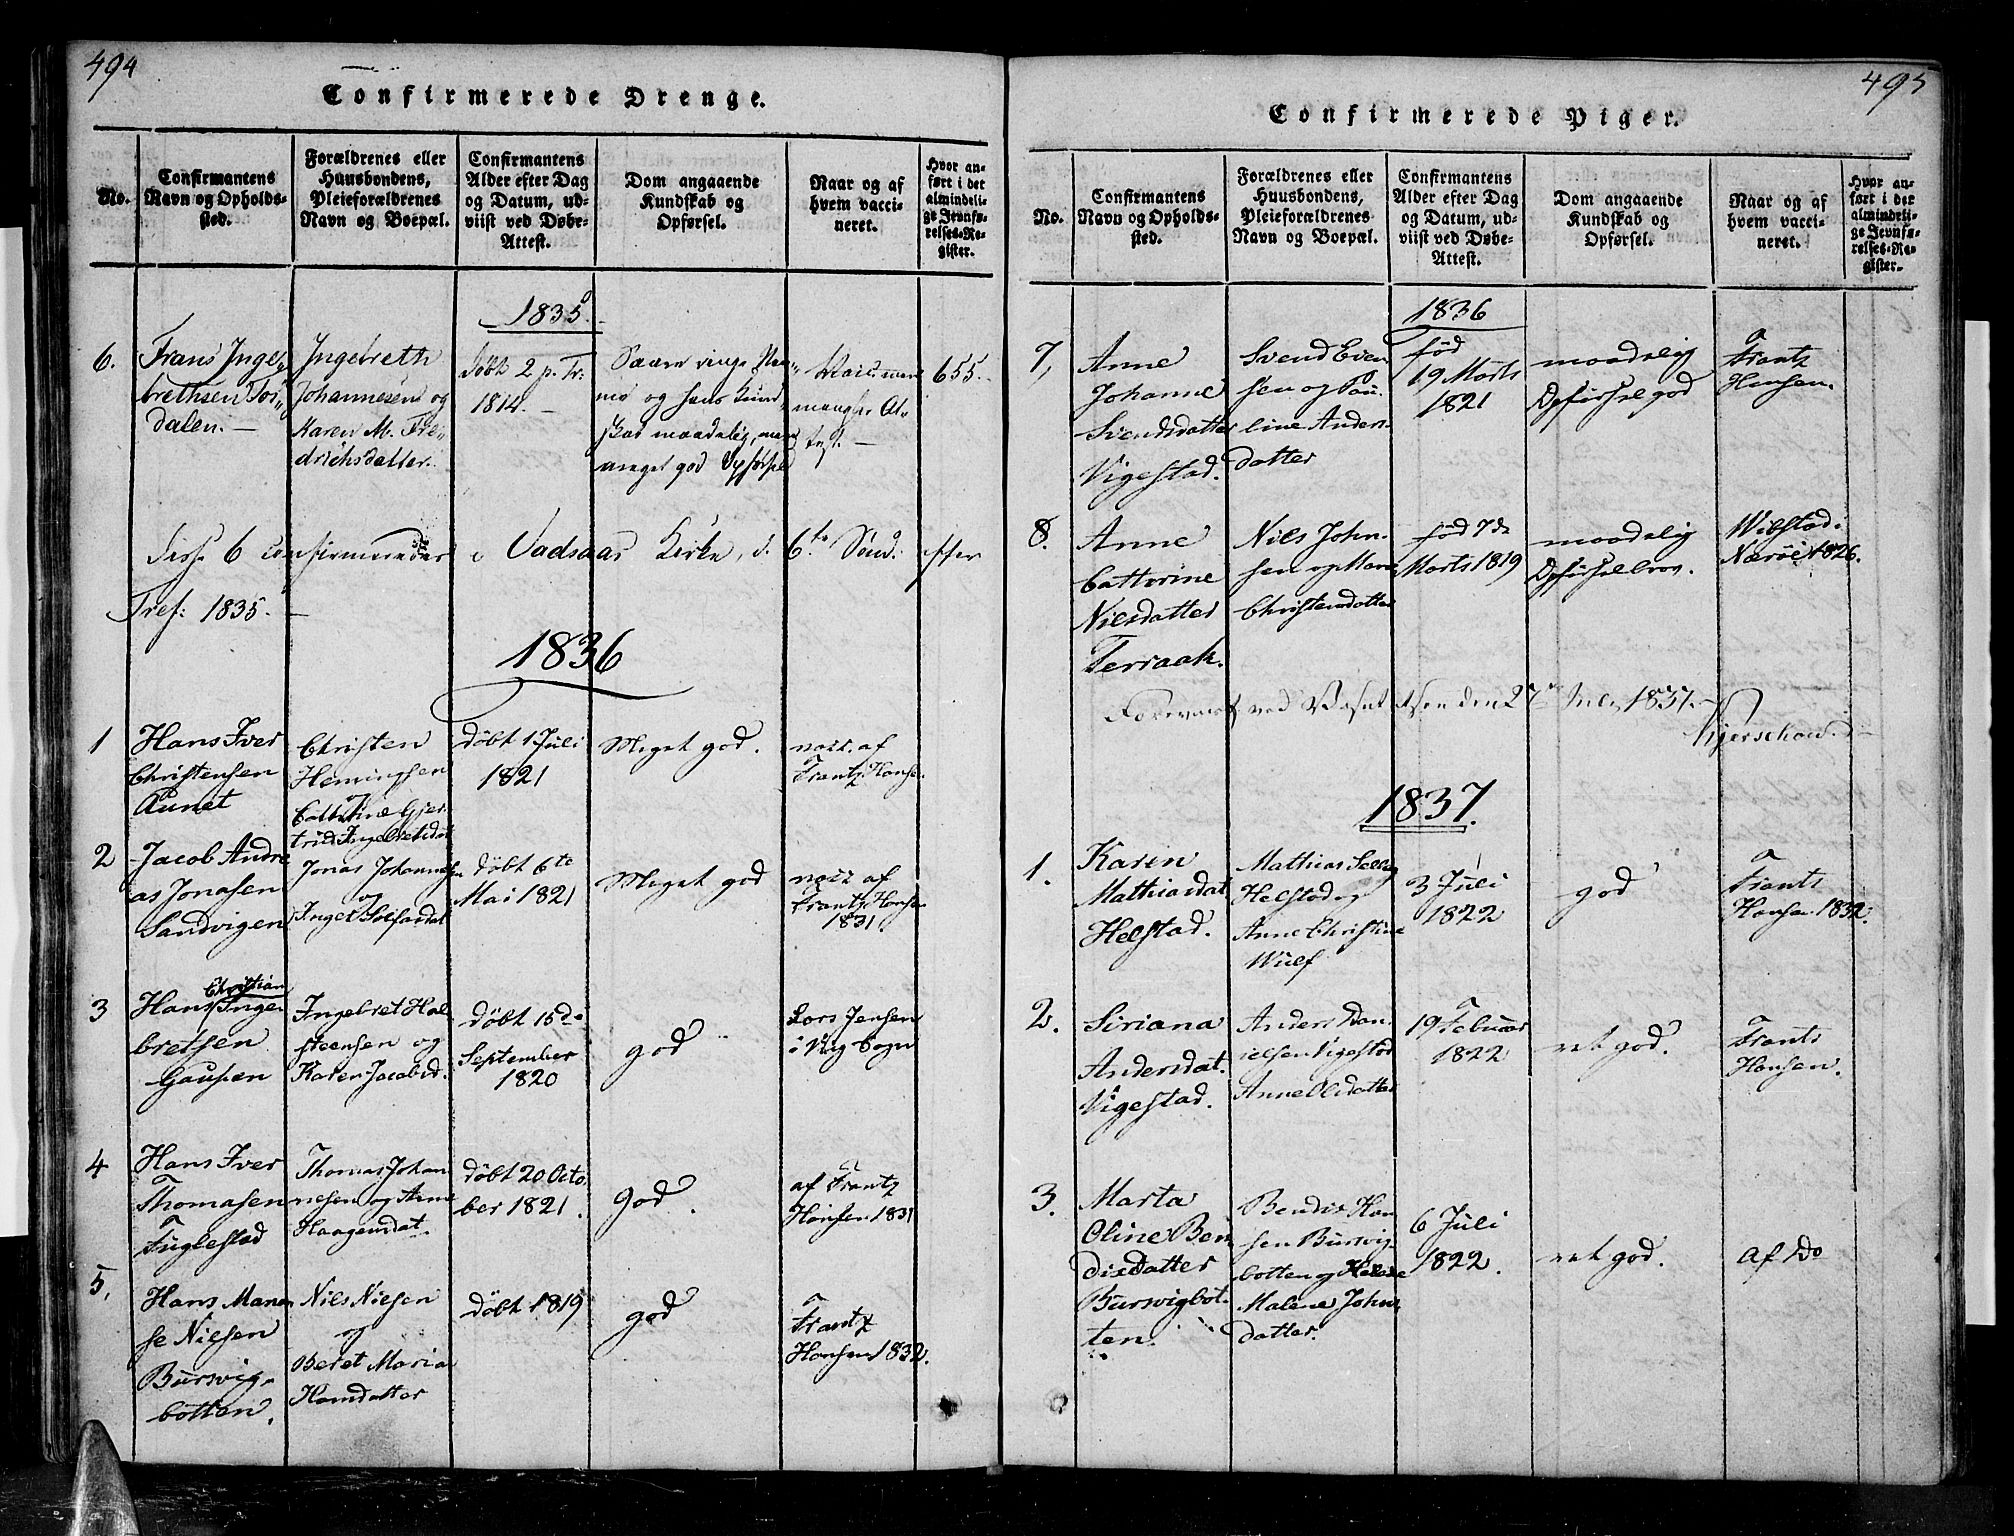 494
Confirmerede Drenge.
No.
Confirmantens
Navn og Opholds-
sted.
Forældrenes eller
Huusbondens,
Pleieforældrenes
Navn og Boepæl.
Confirmantens
Alder efter Dag
og Datum, ud-
viist ved Døbe-
Attest.
Dom angaaende
Kundskab og
Opførsel.
Naar og af
hvem vacci-
neret.
Hvor an-
ført i det
almindeli-
ge Jevnfø-
relses-Re-
gister.
1835.
6.
Frans Inge-
brethsen Tos-
dalen.
Ingebreth
Johannesen og
Karen M. Fre-
drichsdatter.
Døbt 2 p. Tr:
1814.
Saare ringe
og hans Kund-
skab maadelig, men
meget god Opførsel
655.
Disse 6 confirmerede i Vadsaas Kirke, d. 6te Sønd: efter
Tref: 1835.
1836
1
Hans Iver
Christensen
Aunet
Christen
Hemingsen
og
Cathrine Gjer-
trud Ingebretsdat
Døbt 1 Juli
1821
Meget god.
vacc. af
Frantz Hansen
2
Jacob Andre
as Jonasen
Sandvigen
Jonas Johannesen
og
Døbt 6te
Mai 1821
Meget god
vacc af
Frantz Hansen
1831
3
Christian
Hans Inge
bretsen
Gaupen
Ingebret Hal
steensen og
Karen Jacobsd.
Døbt 15de
September
1820
god
Lars Jensen
i Vug Sogn
4
Hans Iver
Thomasen
Fuglestad
Thomas Johan
nesen og Anne
Haagendat.
Døbt 20 Octo
ber 1821.
God.
af Frantz
Hansen 1831
5,
Hans Mane
se Nielsen
Bursvig-
botten.
Nils Nielsen
og
Beret Maria
Hansdatter
Døbt 1819
god
Frantz
Hansen 1832.
495
Confirmerede Piger.
No.
Confirmantens
Navn og Opholds-
sted.
Forældrenes eller
Huusbondens,
Pleieforældrenes
Navn og Boepæl.
Confirmantens
Alder efter Dag
og Datum, ud-
viist ved Døbe-
Attest.
Dom angaaende
Kundskab og
Opførsel.
Naar og af
hvem vacci-
neret.
Hvor an-
ført i det
almindeli-
ge Jevnfø-
relses-Re-
gister.
1836
7,
Anne
Johanne
Svendsdatter
Vigestad.
Svend Even
sen og Pau-
line Anders-
datter
fød
19 Marts
1821
maadelig
Opførsel god
Frantz
Hansen.
8.
Anne
Cathrine
Nilsdatter
Terraak.
Nils John-
sen og Maren
Christensdatter
fød 7de
Marts 1819
maadelig
Opførsel brav.
Wibstad i
Nærøe 1826.
Foreviist ved den 27de 1837.
1837.
1.
Karen
Mathiasdat
Helstad.
Mathias
Helstad og
Anne Christine
Wulf
3 Juli
1822
god
Frants
Hansen 1832.
2.
Siriana
Andersdat.
Vigestad.
Anders Dan-
ielsen Vigestad
Anne Olsdatter
19 Febuar
1822
ret god.
Frants
Hansen.
3.
Marta
Oline Ben
dixdatter
Bursvigbot-
ten.
Bendix Han
sen Bursvig-
botten og
Malene Johns
datter.
6 Juli
1822.
ret god.
af Do